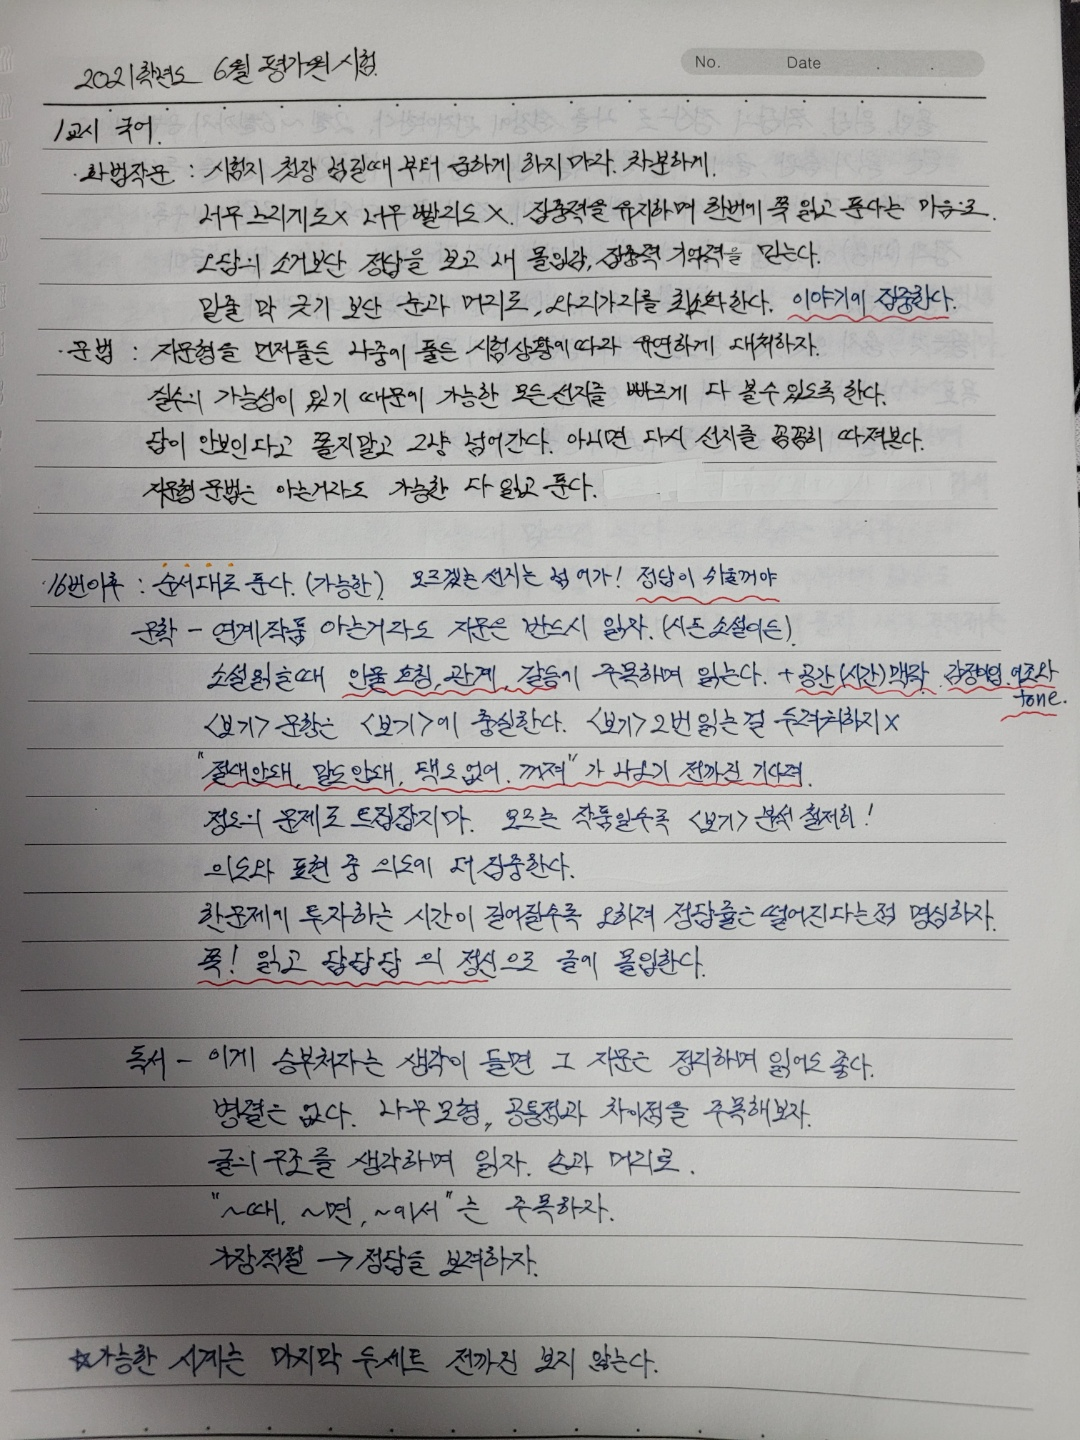 2021학년도 6월 평가원 시험
No. Date . .
1교시 국어.
·화법작문 : 시험지 첫장 넘길때 부터 급하게 하지 마라. 차분하게.
너무 느리게도× 너무 빨리도 ×. 집중력을 유지하며 한번에 쭉 읽고 푼다는 마음으로.
오답의 소거보단 정답을 보고 내 몰입감, 집중력 기억력을 믿는다.
밑줄 막 긋기 보단 눈과 머리로, 사리가리를 최소화한다. 이야기에 집중한다.
·문법 : 지문형을 먼저풀든 나중에 풀든 시험상황에 따라 유연하게 대처하자.
실수의 가능성이 있기 때문에 가능한 모든 선지를 빠르게 다 볼수 있도록 한다.
답이 안보인다고 쫄지말고 그냥 넘어간다. 아니면 다시 선지를 꼼꼼히 따져본다.
지문형 문법은 아는거라도 가능한 다 읽고 푼다.
·16번이후 : 순서대로 푼다. (가능한) 모르겠는 선지는 넘어가! 정답이 쉬울꺼야
문학 - 연계작품 아는거라도 지문은 반드시 읽자. (시든 소설이든)
소설읽을때 인물 호칭, 관계, 갈등에 주목하며 읽는다. + 공간(시간)맥락. 감정이입. 어조와
tone.
<보기> 문항은 <보기>에 충실한다. <보기> 2번 읽는 걸 두려워하지×
"절대안돼, 말도안돼, 택도 없어. 꺼져" 가 나오기 전까진 기다려.
정도의 문제로 트집잡지마. 모르는 작품일수록 <보기> 분석 철저히!
의도와 표현 중 의도에 더 집중한다.
한문제에 투자하는 시간이 길어질수록 오히려 정답률은 떨어진다는점 명심하자.
쭉! 읽고 답답답 의 정신으로 글에 몰입한다.
독서 - 이게 승부처라는 생각이 들면 그 지문은 정리하며 읽어도 좋다.
병렬은 없다. 나무모형, 공통점과 차이점을 주목해보자.
글의 구조를 생각하며 읽자. 손과 머리로.
"~때, ~면, ~에서" 는 주목하자.
가장적절 → 정답을 보려하자.
☆가능한 시계는 마지막 두세트 전까진 보지 않는다.